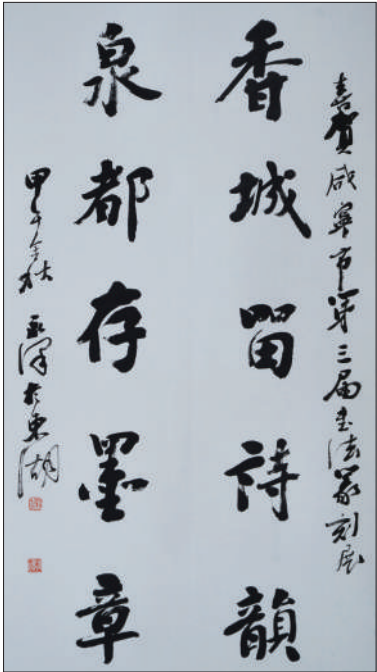 喜賀咸寧市第三届书法篆刻展
香城留詩韻
泉都存墨章
甲午金秋 永澤於東湖